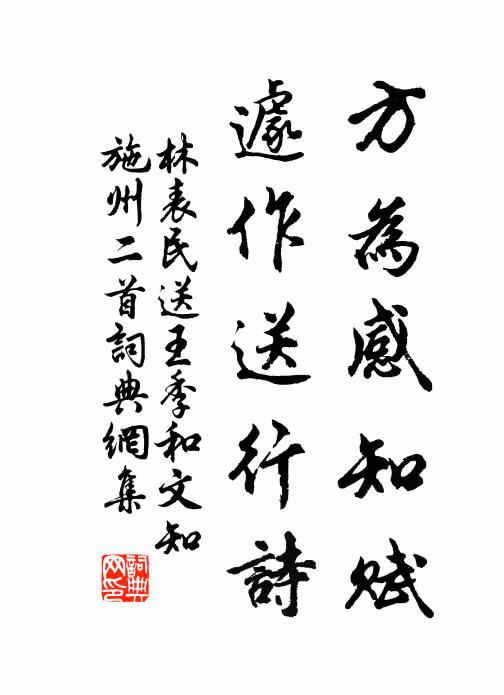 方為感知賦
遽作送行詩
林表民送王季和文知
施州二首詞典網集
詞典
网印